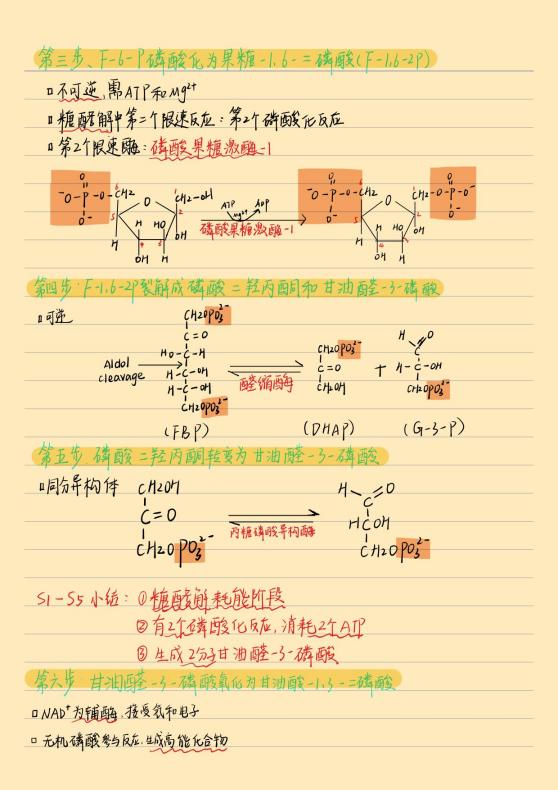 第三步、F-6-P磷酸化为果糖-1,6-二磷酸(F-1,6-2P)
不可逆,需ATP和Mg²⁺
糖酵解中第二个限速反应:第2个磷酸化反应
第2个限速酶:磷酸果糖激酶-1
⁻O-P-O-CH₂ O O⁻ 6 O 1 CH₂-OH 5 2 H H HO OH 4 3 OH H
ATP ADP Mg²⁺
磷酸果糖激酶-1
⁻O-P-O-CH₂ O O⁻ 6 O 1 CH₂-O-P-O⁻ O O⁻ 5 2 H H HO OH 4 3 OH H
第四步:F-1,6-2P裂解成磷酸二羟丙酮和甘油醛-3-磷酸
可逆
CH₂OPO₃²⁻
C=O
HO-C-H
H-C-OH
H-C-OH
CH₂OPO₃²⁻
Aldol cleavage
醛缩酶
CH₂OPO₃²⁻
C=O
CH₂OH
+
H O
C
H-C-OH
CH₂OPO₃²⁻
(FBP) (DHAP) (G-3-P)
第五步.磷酸二羟丙酮转变为甘油醛-3-磷酸
同分异构体
CH₂OH
C=O
CH₂OPO₃²⁻
丙糖磷酸异构酶
H C=O
HCOH
CH₂OPO₃²⁻
S1-S5小结:①糖酵解耗能阶段
②有2个磷酸化反应,消耗2个ATP
③生成2分子甘油醛-3-磷酸
第六步 甘油醛-3-磷酸氧化为甘油酸-1,3-二磷酸
NAD⁺为辅酶,接受氢和电子
无机磷酸参与反应,生成高能化合物